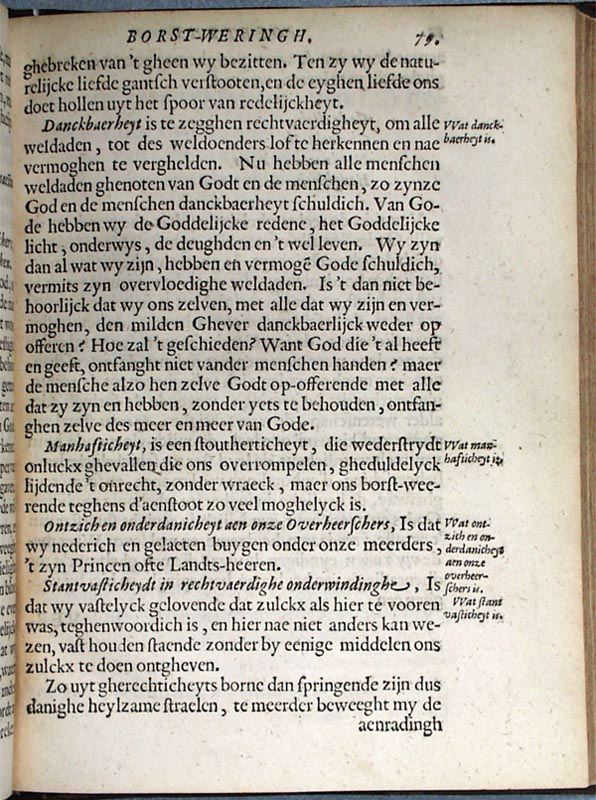 BORST-WERINGH. 79.
ghebreken van 't gheen wy bezitten. Ten zy wy de natu-
relijcke liefde gantsch verstooten, en de eyghen liefde ons
doet hollen uyt het spoor van redelijckheyt.
Danckbaerheyt is te zegghen rechtvaerdigheyt, om alle
weldaden, tot des weldoenders lof te herkennen en nae
vermoghen te verghelden. Nu hebben alle menschen
weldaden ghenoten van Godt en de menschen, zo zynze
God en de menschen danckbaerheyt schuldich. Van Go-
de hebben wy de Goddelijcke redene, het Goddelijcke
licht, onderwys, de deughden en 't wel leven. Wy zyn
dan al wat wy zijn, hebben en vermogē Gode schuldich,
vermits zyn overvloedighe weldaden. Is 't dan niet be-
hoorlijck dat wy ons zelven, met alle dat wy zijn en ver-
moghen, den milden Ghever danckbaerlijck weder op
offeren? Hoe zal 't geschieden? Want God die 't al heeft
en geeft, ontfanght niet vander menschen handen? maer
de mensche alzo hen zelve Godt op-offerende met alle
dat zy zyn en hebben, zonder yets te behouden, ontfan-
ghen zelve des meer en meer van Gode.
Manhafticheyt, is een stoutherticheyt, die wederstrydt
onluckx ghevallen die ons overrompelen, gheduldelyck
lijdende 't onrecht, zonder wraeck, maer ons borst-wee-
rende teghens d'aenstoot zo veel moghelyck is.
Ontzich en onderdanicheyt aen onze Overheerschers, Is dat
wy nederich en gelaeten buygen onder onze meerders,
't zyn Princen ofte Landts-heeren.
Stantvasticheydt in rechtvaerdighe onderwindinghe, Is
dat wy vastelyck gelovende dat zulckx als hier te vooren
was, teghenwoordich is, en hier nae niet anders kan we-
zen, vast houden staende zonder by eenige middelen ons
zulckx te doen ontgheven.
Zo uyt gherechticheyts borne dan springende zijn dus
danighe heylzame straelen, te meerder beweeght my de
aenradingh
Wat danck-
baerheyt is.
Wat man-
hafticheyt is.
Wat ont-
zich en on-
derdanicheyt
aen onze
overheer-
schers is.
Wat stant
vasticheyt is.